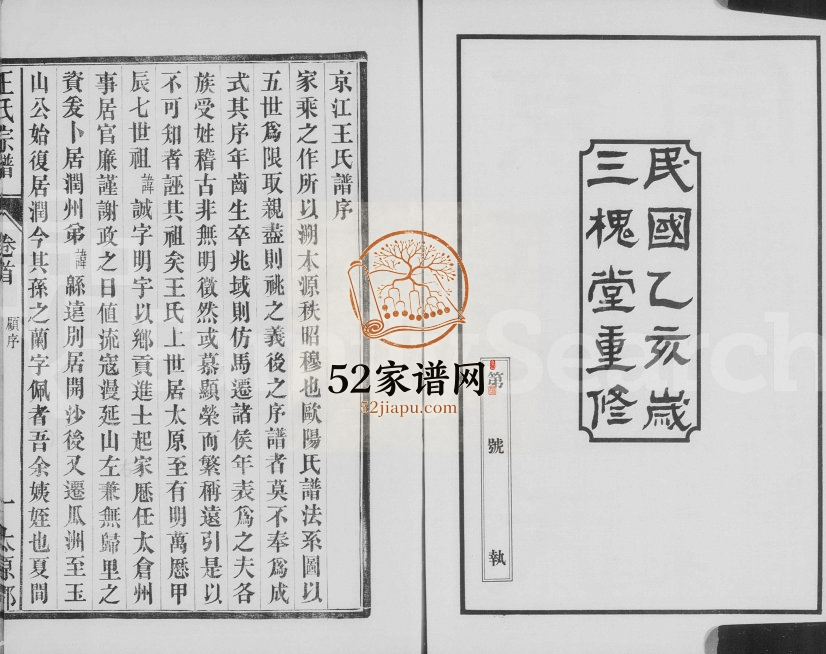 民國乙亥歲
三槐堂重修
第 號 執
京江王氏譜序
家乘之作所以溯木源秩昭穆也歐陽氏譜法系圖以
五世爲限取親盡則祧之義後之序譜者莫不奉爲成
式其序年齒生卒兆域則仿馬遷諸侯年表爲之夫各
族受姓稽古非無明徵然或慕顯榮而繁稱遠引是以
不可知者誣其祖矣王氏上世居太原至有明萬厯甲
辰七世祖諱誠字明字以鄉貢進士起家厯任太倉州
事居官廉謹謝政之日值流寇漫延山左兼無歸里之
資爰卜居潤州弟諱縣遠別居開沙後又遷瓜洲至玉
山公始復居潤今其孫之蘭字佩者吾余姨姪也夏間
王氏宗譜
卷首
顧序
一
太原郡
52家谱网
52jiapu.com
Search